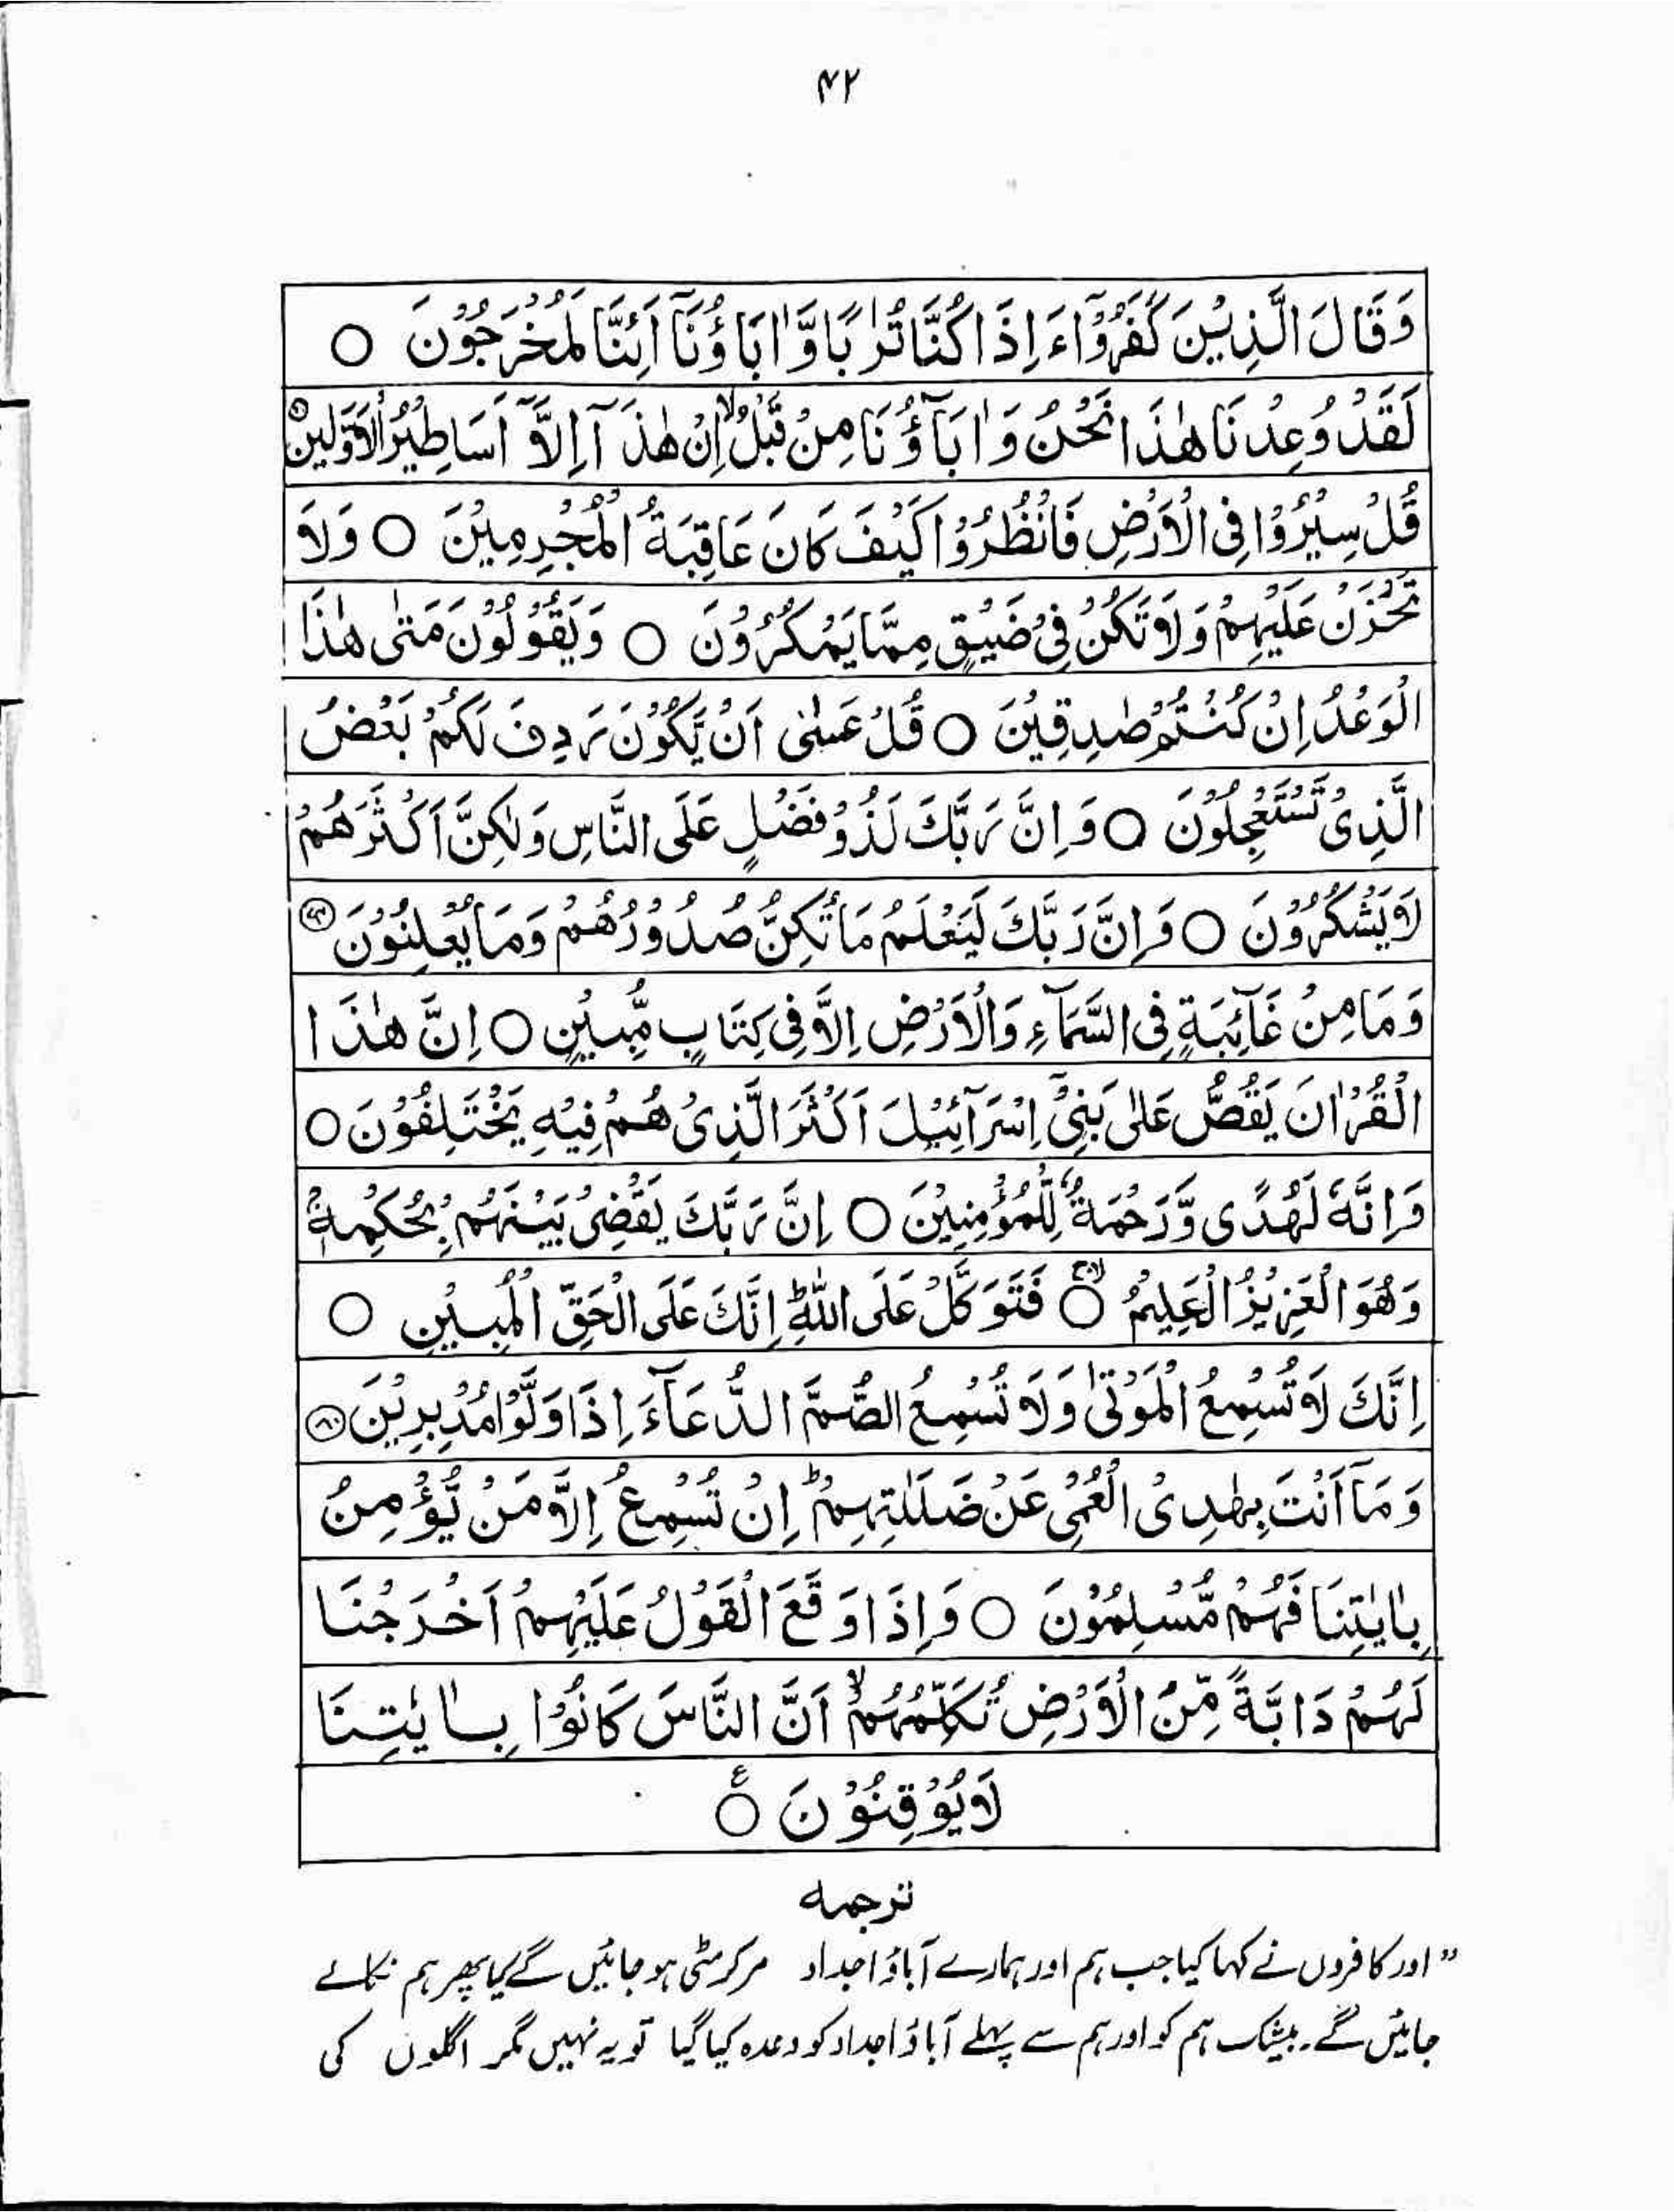 ۴۲
وَقَالَ الَّذِیْنَ كَفَرُوْۤا ءَاِذَا كُنَّا تُرٰبًا وَّاٰبَاؤُنَاۤ اَئِنَّا لَمُخْرَجُوْنَ ○
لَقَدْ وُعِدْنَا هٰذَا نَحْنُ وَاٰبَآؤُنَا مِنْ قَبْلُ ۙ اِنْ هٰذَاۤ اِلَّاۤ اَسَاطِیْرُ الْاَوَّلِیْنَ ○
قُلْ سِیْرُوْا فِی الْاَرْضِ فَانْظُرُوْا كَیْفَ كَانَ عَاقِبَةُ الْمُجْرِمِیْنَ ○ وَلَا
تَحْزَنْ عَلَیْهِمْ وَلَا تَكُنْ فِیْ ضَیْقٍ مِمَّا یَمْكُرُوْنَ ○ وَیَقُوْلُوْنَ مَتٰی هٰذَا
الْوَعْدُ اِنْ كُنْتُمْ صٰدِقِیْنَ ○ قُلْ عَسٰی اَنْ یَّكُوْنَ رَدِفَ لَكُمْ بَعْضُ
الَّذِیْ تَسْتَعْجِلُوْنَ ○ وَاِنَّ رَبَّكَ لَذُوْ فَضْلٍ عَلَی النَّاسِ وَلٰكِنَّ اَكْثَرَهُمْ
لَا یَشْكُرُوْنَ ○ وَاِنَّ رَبَّكَ لَیَعْلَمُ مَا تُكِنُّ صُدُوْرُهُمْ وَمَا یُعْلِنُوْنَ
وَمَا مِنْ غَآئِبَةٍ فِی السَّمَآءِ وَالْاَرْضِ اِلَّا فِیْ كِتَابٍ مُّبِیْنٍ ○ اِنَّ هٰذَا
الْقُرْاٰنَ یَقُصُّ عَلٰی بَنِیْۤ اِسْرَآئِیْلَ اَكْثَرَ الَّذِیْ هُمْ فِیْهِ یَخْتَلِفُوْنَ ○
وَاِنَّهٗ لَهُدًی وَّرَحْمَةٌ لِّلْمُؤْمِنِیْنَ ○ اِنَّ رَبَّكَ یَقْضِیْ بَیْنَهُمْ بِحُكْمِهٖ ۚ
وَهُوَ الْعَزِیْزُ الْعَلِیْمُ ○ فَتَوَكَّلْ عَلَی اللّٰهِ ؕ اِنَّكَ عَلَی الْحَقِّ الْمُبِیْنِ ○
اِنَّكَ لَا تُسْمِعُ الْمَوْتٰی وَلَا تُسْمِعُ الصُّمَّ الدُّعَآءَ اِذَا وَلَّوْا مُدْبِرِیْنَ ۸۰
وَمَاۤ اَنْتَ بِهٰدِی الْعُمْیِ عَنْ ضَلٰلَتِهِمْ ؕ اِنْ تُسْمِعُ اِلَّا مَنْ یُّؤْمِنُ
بِاٰیٰتِنَا فَهُمْ مُّسْلِمُوْنَ ○ وَاِذَا وَقَعَ الْقَوْلُ عَلَیْهِمْ اَخْرَجْنَا
لَهُمْ دَابَّةً مِّنَ الْاَرْضِ تُكَلِّمُهُمْ ۙ اَنَّ النَّاسَ كَانُوْا بِاٰیٰتِنَا
لَا یُوْقِنُوْنَ ○ ع
ترجمہ
"اور کافروں نے کہا کیا جب ہم اور ہمارے آباؤ اجداد مر کر مٹی ہو جائیں گے کیا پھر ہم نکالے
جائیں گے۔ بیشک ہم کو اور ہم سے پہلے آباؤ اجداد کو وعدہ کیا گیا تو یہ نہیں مگر اگلوں کی